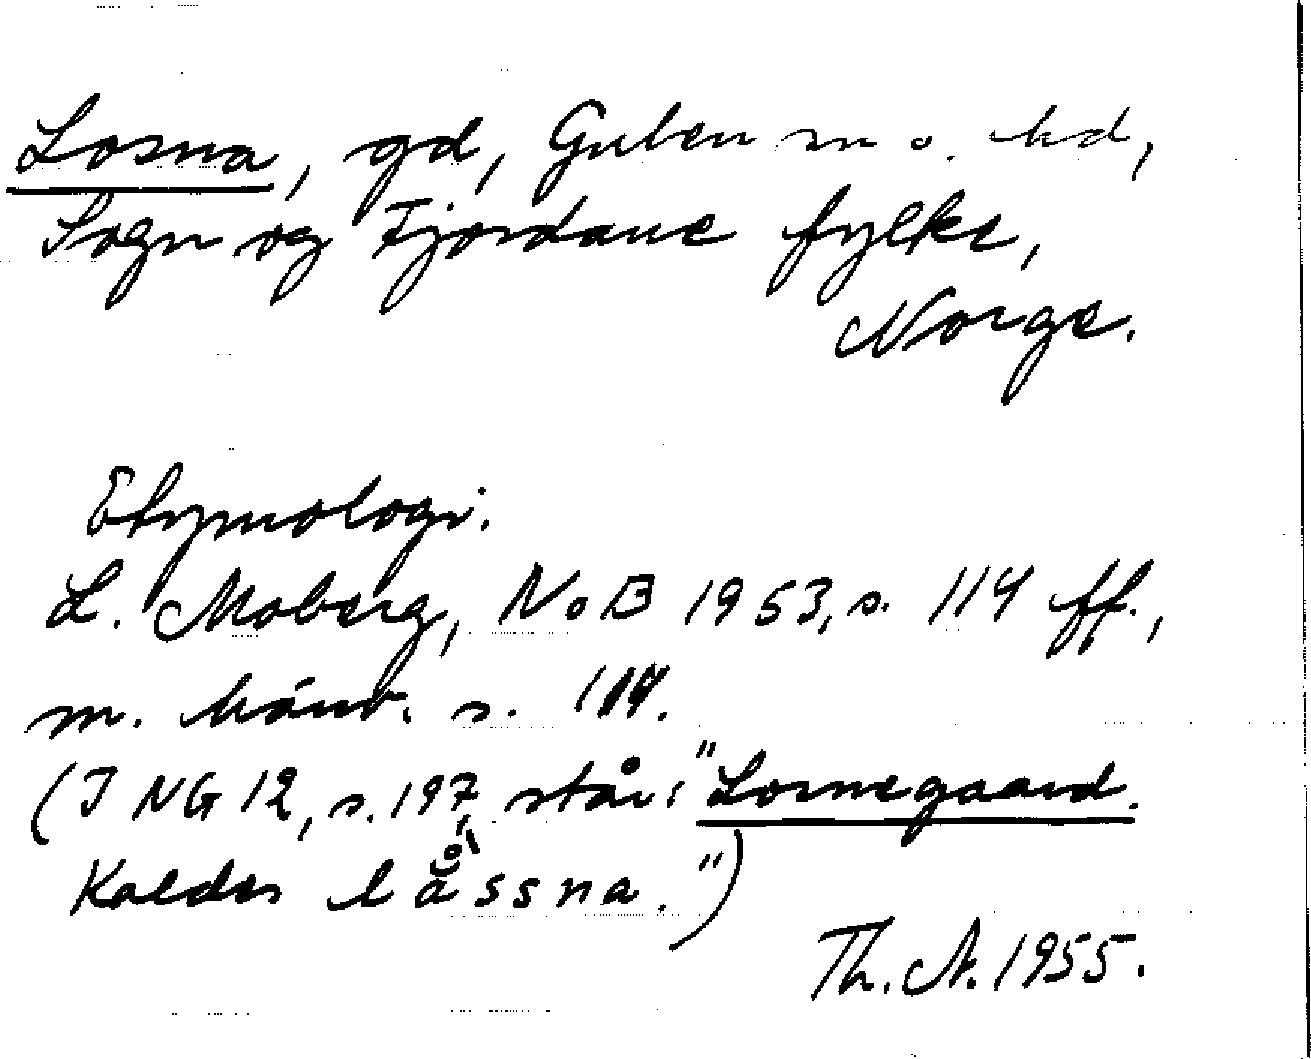 Losna, gd, Gulen sn o. hd,
Sogn og Fjordane fylke,
Norge.
Etymologi.
L. Moberg, NoB 1953, s. 114 ff.,
m. hänv. s. 114.
(I NG 12, s. 197, står: "Losnegaard.
Kaldes låssna.")
Th. A. 1955.